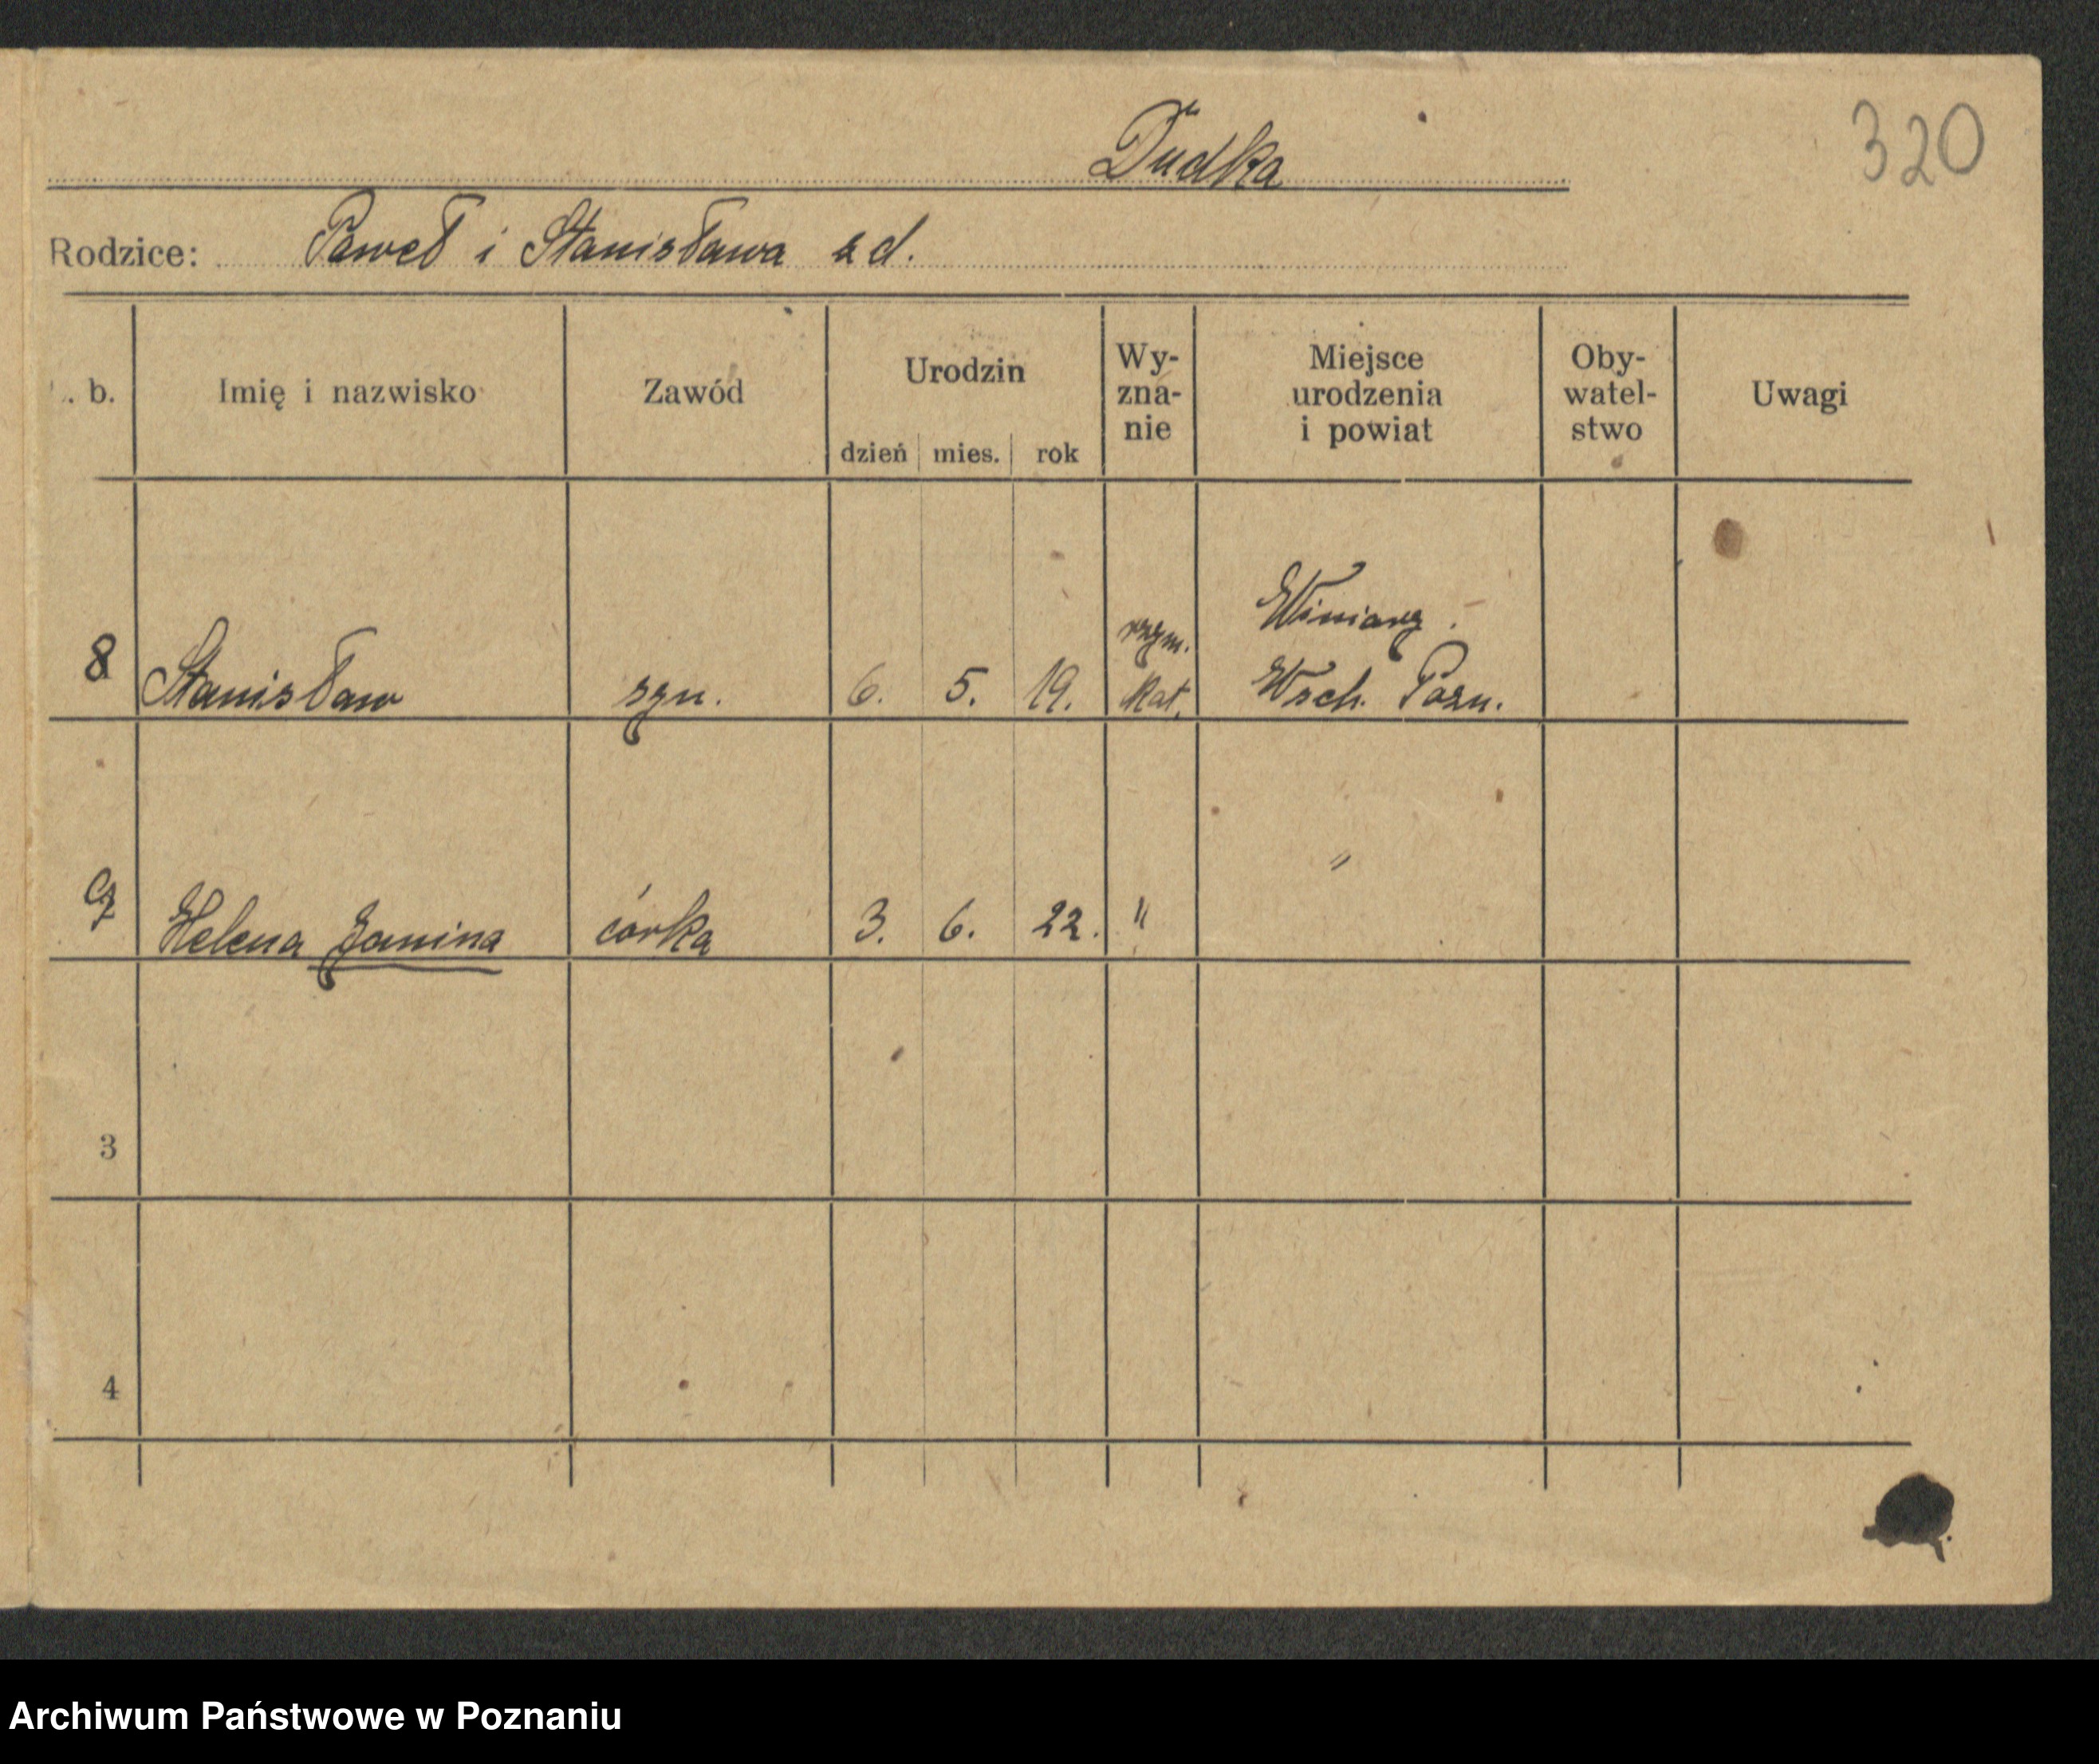 Dudka
320
Rodzice: Paweł i Stanisława z d.
. b.
Imię i nazwisko
Zawód
Urodzin
dzień mies. rok
Wy-
zna-
nie
Miejsce
urodzenia
i powiat
Oby-
watel-
stwo
Uwagi
8 Stanisław syn. 6. 5. 19. rzym. kat. Winiary. Wsch. Pozn.
9 Helena Janina córka 3. 6. 22. " "
3
4
Archiwum Państwowe w Poznaniu